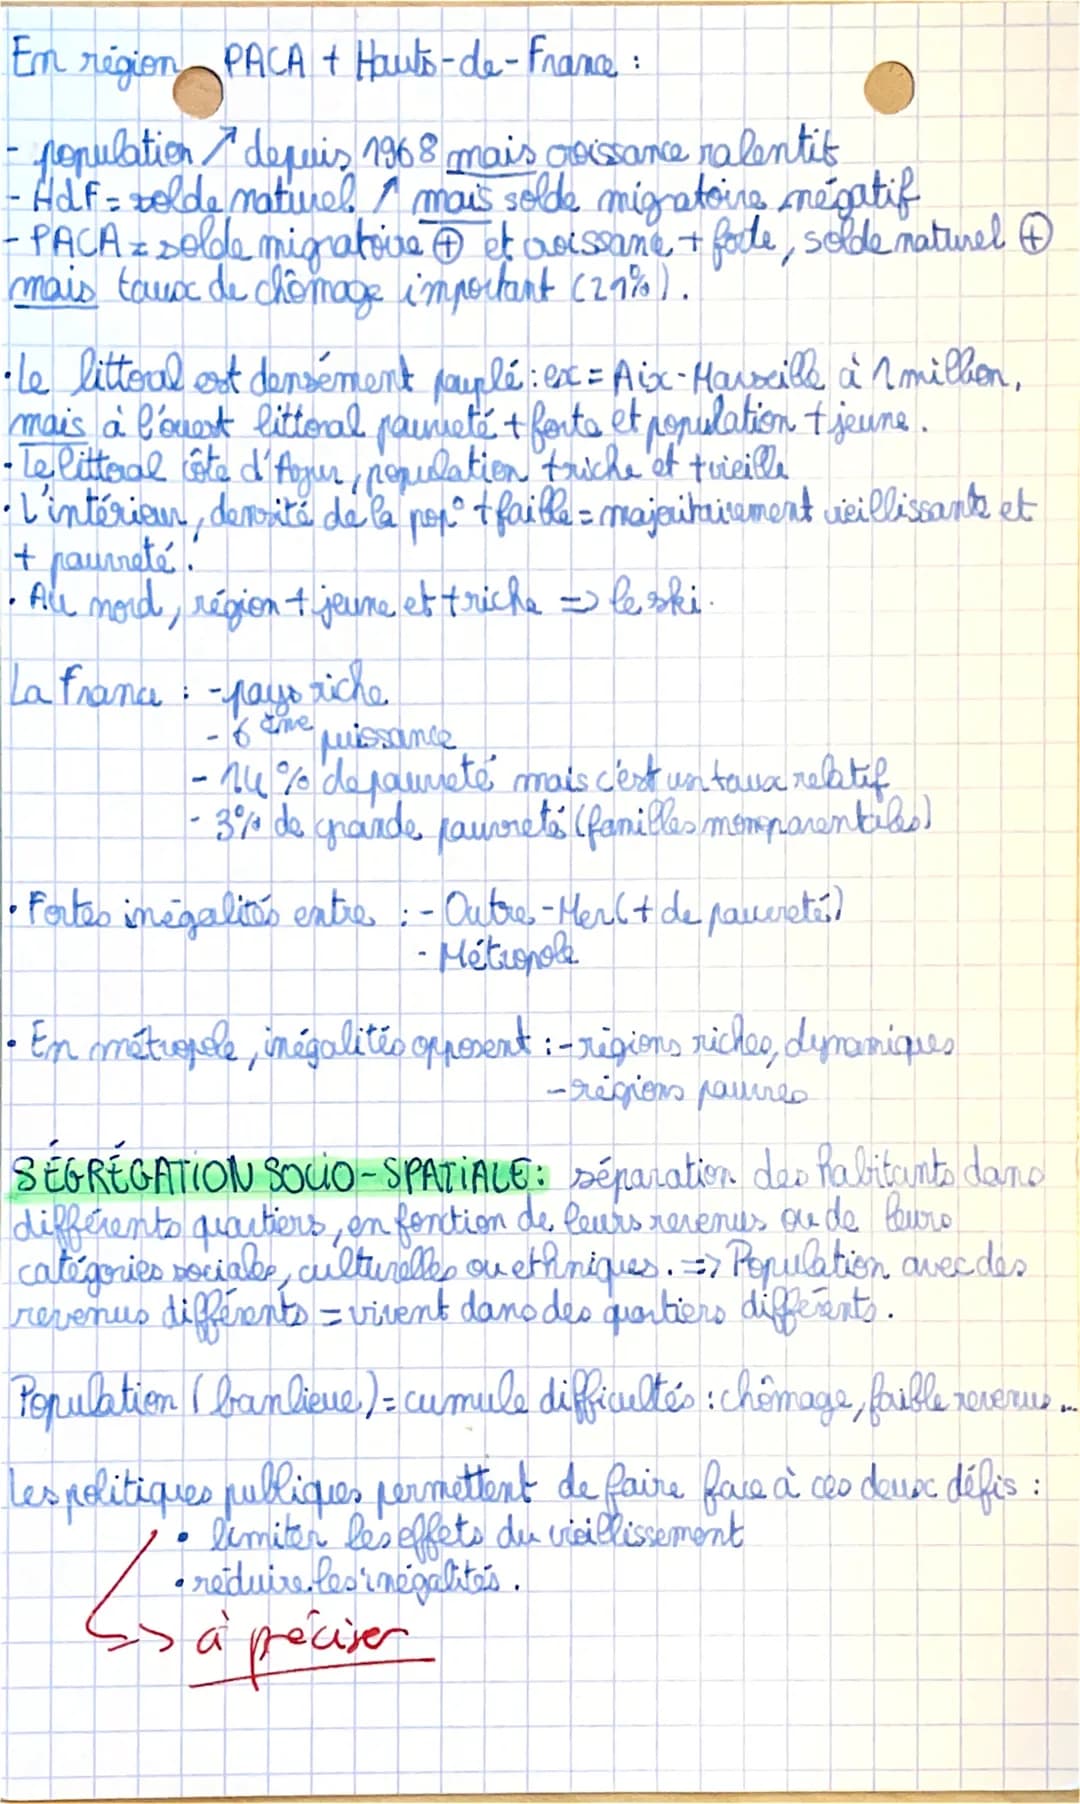 En région PACA + Hauts-de-France :
- population ↗ depuis 1968 mais croissance ralentit
- HdF = solde naturel ↗ mais solde migratoire négatif
- PACA = solde migratoire ⊕ et croissance + forte, solde naturel ⊕
mais taux de chômage important (21%).
• Le littoral est densément peuplé : ex = Aix-Marseille à 1 million,
mais à l'ouest littoral pauvreté + forte et population + jeune.
• Le littoral Côte d'Azur, population + riche et + vieille
• L'intérieur, densité de la pop° + faible = majoritairement vieillissante et
+ pauvreté.
• Au nord, région + jeune et + riche => le ski.
La France : - pays riche
- 6ème puissance
- 14% de pauvreté mais c'est un taux relatif
- 3% de grande pauvreté (familles monoparentales)
• Fortes inégalités entre : - Outre-Mer (+ de pauvreté)
- Métropole
• En métropole, inégalités opposent : - régions riches, dynamiques
- régions pauvres
SÉGRÉGATION SOCIO-SPATIALE : séparation des habitants dans
différents quartiers, en fonction de leurs revenus ou de leurs
catégories sociales, culturelles ou ethniques. => Population avec des
revenus différents = vivent dans des quartiers différents.
Population (banlieue) = cumule difficultés : chômage, faible revenus...
Les politiques publiques permettent de faire face à ces deux défis :
• limiter les effets du vieillissement
• réduire les inégalités.
↳> à préciser